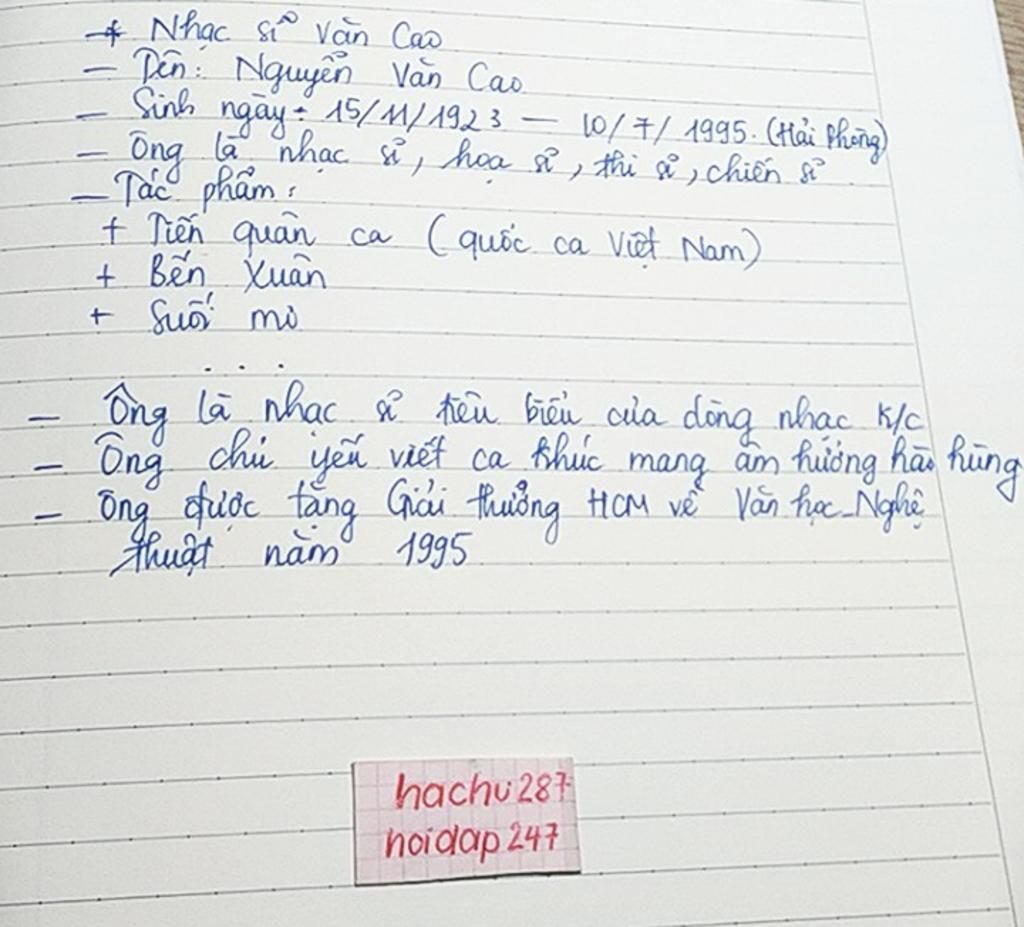 + Nhạc sĩ Văn Cao
- Tên: Nguyễn Văn Cao
- Sinh ngày: 15/11/1923 - 10/7/1995. (Hải Phòng)
- Ông là nhạc sĩ, họa sĩ, thi sĩ, chiến sĩ
- Tác phẩm:
+ Tiến quân ca (quốc ca Việt Nam)
+ Bến Xuân
+ Suối mơ
...
- Ông là nhạc sĩ tiêu biểu của dòng nhạc K/C
- Ông chủ yếu viết ca khúc mang âm hưởng hào hùng
- Ông được tặng Giải thưởng HCM về Văn học-Nghệ
thuật năm 1995
hachu287
hoidap247